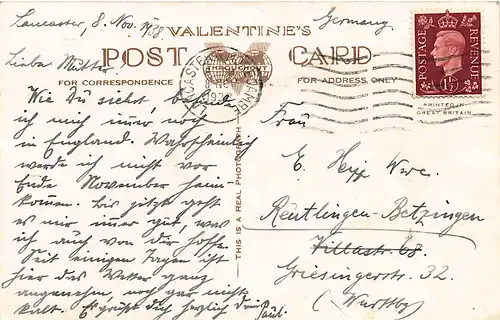 Lancaster, 8. Nov. 1938.
Germany
VALENTINE'S
POST CARD
THROUGHOUT
FOR CORRESPONDENCE
FOR ADDRESS ONLY
LANCASTER
POSTAGE REVENUE
1½D
PRINTED IN
GREAT BRITAIN
THIS IS A REAL PHOTOGRAPH
Liebe Mutter
Wie Du siehst, befinde
ich mich immer noch
in England. Wahrscheinlich
werde ich nicht vor
Ende November heim
kommen. Bis jetzt geht
es mir immer gut, was
ich auch von dir hoffe.
Seit einigen Tagen ist
hier das Wetter ganz
angenehm, noch gar nicht
kalt. Es grüßt dich herzlich dein
Paul.
Frau
E. Wwe.
Reutlingen-Betzingen
Villastr. 68.
Griesingerstr. 32
(Württbg)